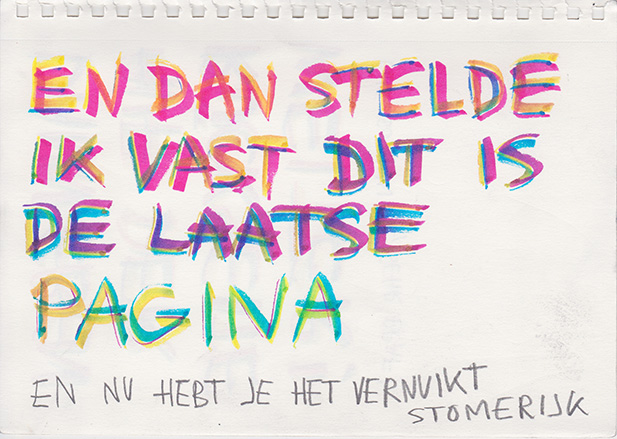 EN DAN STELDE
IK VAST DIT IS
DE LAATSE
PAGINA
EN NU HEBT JE HET VERNUIKT
STOMERIJK